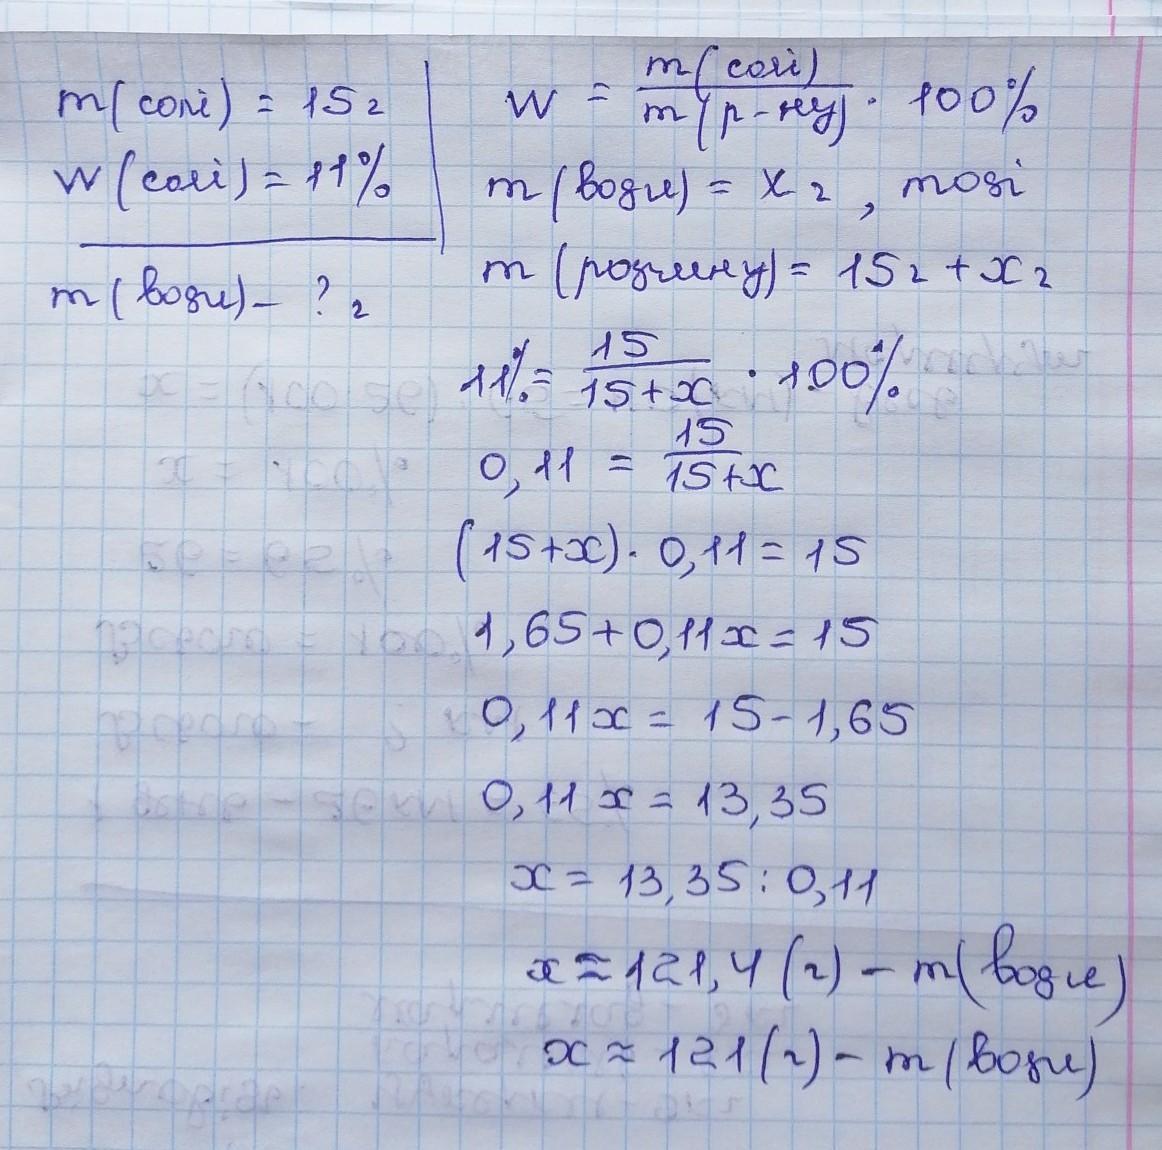 m(солі) = 15г
W(солі) = 11%
m(води) - ? г
W = m(солі)/m(р-ну) · 100%
m(води) = x г, тоді
m(розчину) = 15г + x г
11% = 15/15+x · 100%
0,11 = 15/15+x
(15+x) · 0,11 = 15
1,65 + 0,11x = 15
0,11x = 15 - 1,65
0,11x = 13,35
x = 13,35 : 0,11
x ≈ 121,4 (г) - m(води)
x ≈ 121 (г) - m(води)